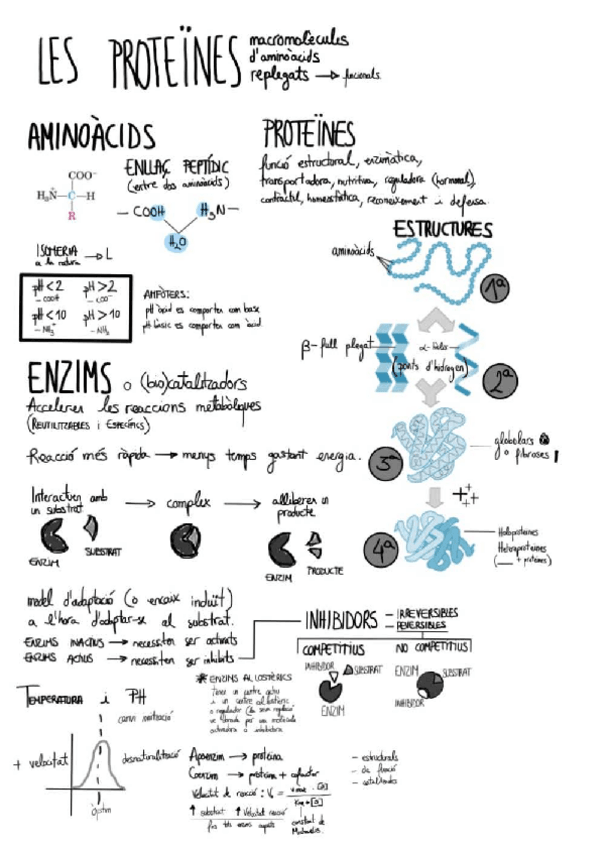 LES PROTEÏNES
macromolècules
d'aminoàcids
replegats → funcionals.
AMINOÀCIDS
COO⁻
H₃N⁺—C—H
R
ENLLAÇ PEPTÍDIC
(entre dos aminoàcids)
— COOH H₃N—
H₂O
ISOMERIA → L
a la natura
pH<2 pH>2
-COOH -COO⁻
pH<10 pH>10
-NH₃⁺ -NH₂
AMFÒTERS:
pH àcid es comporten com base
pH bàsic es comporten com àcid
PROTEÏNES
funció estructural, enzimàtica,
transportadora, nutritiva, reguladora (hormonal),
contràctil, homeostàtica, reconeixement i defensa.
ESTRUCTURES
aminoàcids
1ª
β-full plegat
α-hèlix
(ponts d'hidrogen)
2ª
3ª
globulars
o fibroses
4ª
Holoproteïnes
Heteroproteïnes
(___ + proteïnes)
ENZIMS o (bio)catalitzadors
Acceleren les reaccions metabòliques
(REUTILITZABLES i ESPECÍFICS)
Reacció més ràpida → menys temps gastant energia.
Interactuen amb
un substrat
→ complex → alliberen un
producte
ENZIM
SUBSTRAT
ENZIM
PRODUCTE
model d'adaptació (o encaix induït)
a l'hora d'adaptar-se al substrat.
ENZIMS INACTIUS → necessiten ser activats
ENZIMS ACTIUS → necessiten ser inhibits
INHIBIDORS
— IRREVERSIBLES
— REVERSIBLES
COMPETITIUS
NO COMPETITIUS
INHIBIDOR
SUBSTRAT
ENZIM
ENZIM
SUBSTRAT
INHIBIDOR
* ENZIMS AL·LOSTÈRICS
tenen un centre actiu
i un centre al·lostèric
o regulador
TEMPERATURA i PH
canvi ionització
+ velocitat
desnaturalització
òptim
Apoenzim → proteïna
Coenzim → proteïna + cofactor
Velocitat de reacció: V₀ =
↑ substrat ↑ Velocitat reacció
constant de
Michaelis.
— estructurals
— de funció
— catalitzades